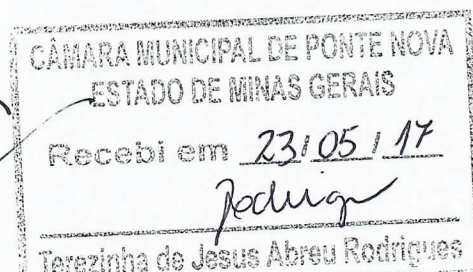 CÂMARA MUNICIPAL DE PONTE NOVA
ESTADO DE MINAS GERAIS
Recebi em 23/05/17
Rodrigu
Terezinha de Jesus Abreu Rodrigues